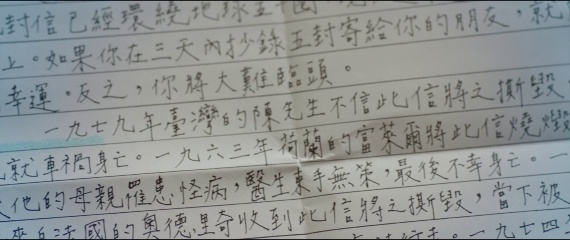 封信已經環繞地球五十圈
上。如果你在三天內抄錄五封寄給你的朋友,就
幸運。反之,你將大難臨頭。
一九七九年臺灣的陳先生不信此信將之撕毀
就車禍身亡。一九六三年荷蘭的富萊爾將此信燒燬
他的母親罹患怪病,醫生束手無策,最後不幸身亡。一
來自法國的奧德里奇收到此信將之撕毀,當下被
一九七四